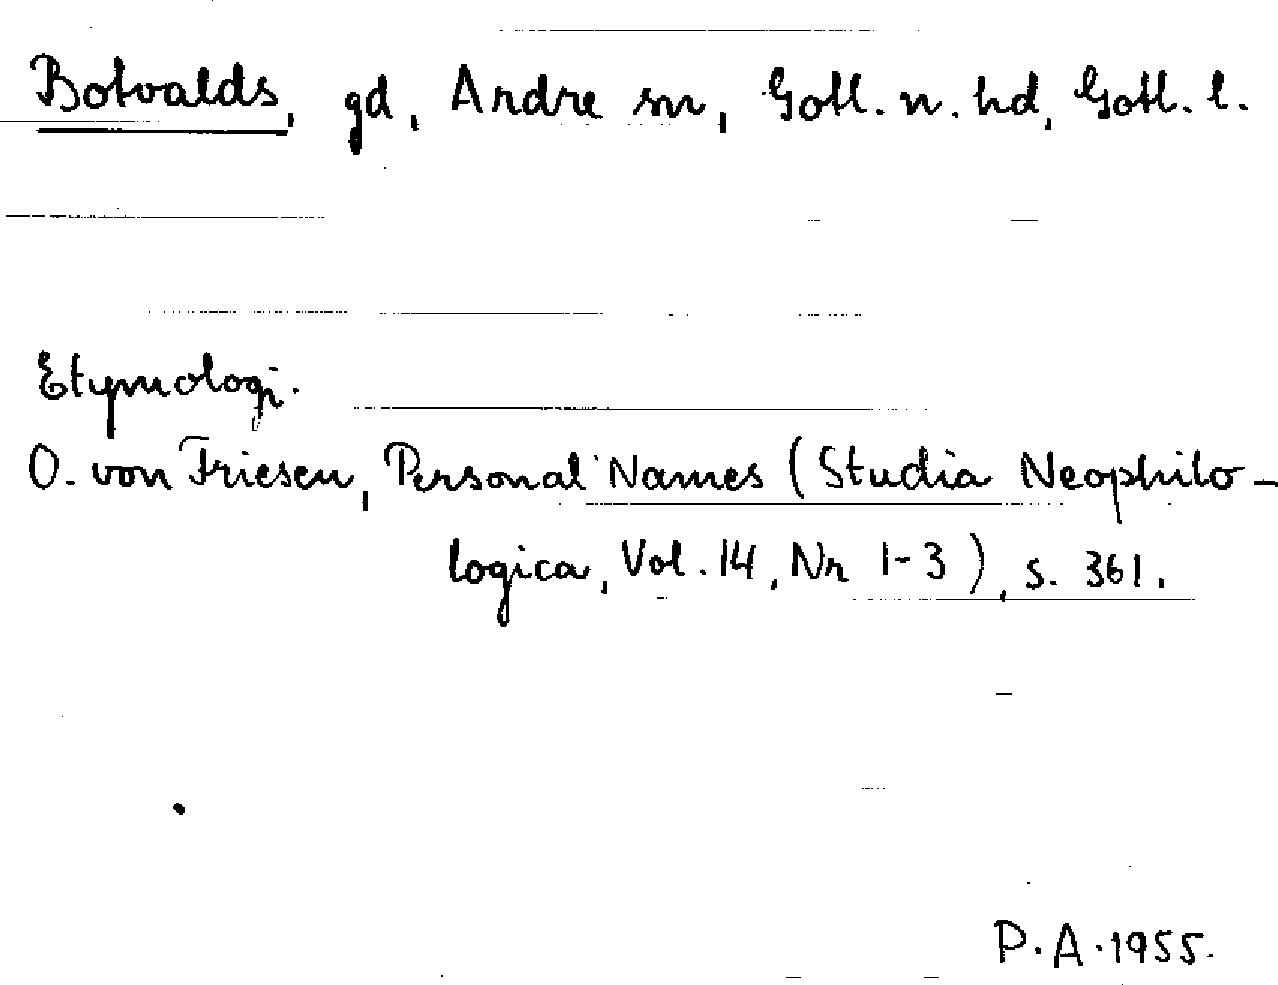 Botvalds, gd, Andre sn, Gotl. n. hd, Gotl. l.
Etymologi.
O. von Friesen, Personal Names (Studia Neophilo-
logica, Vol. 14, Nr 1-3), s. 361.
P.A. 1955.